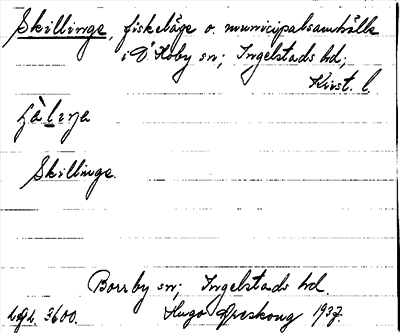 Skillinge, fiskeläge o. municipalsamhälle
i Ö. Hoby sn; Ingelstads hd;
Krist. l.
Skillinge.
Borrby sn; Ingelstads hd.
Lgb. 3600. Hugo Areskoug 1937.